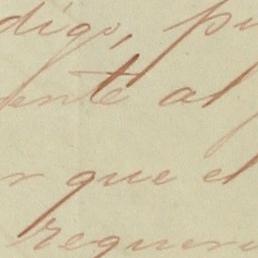 digo, pu
ente al
r que el
requeri